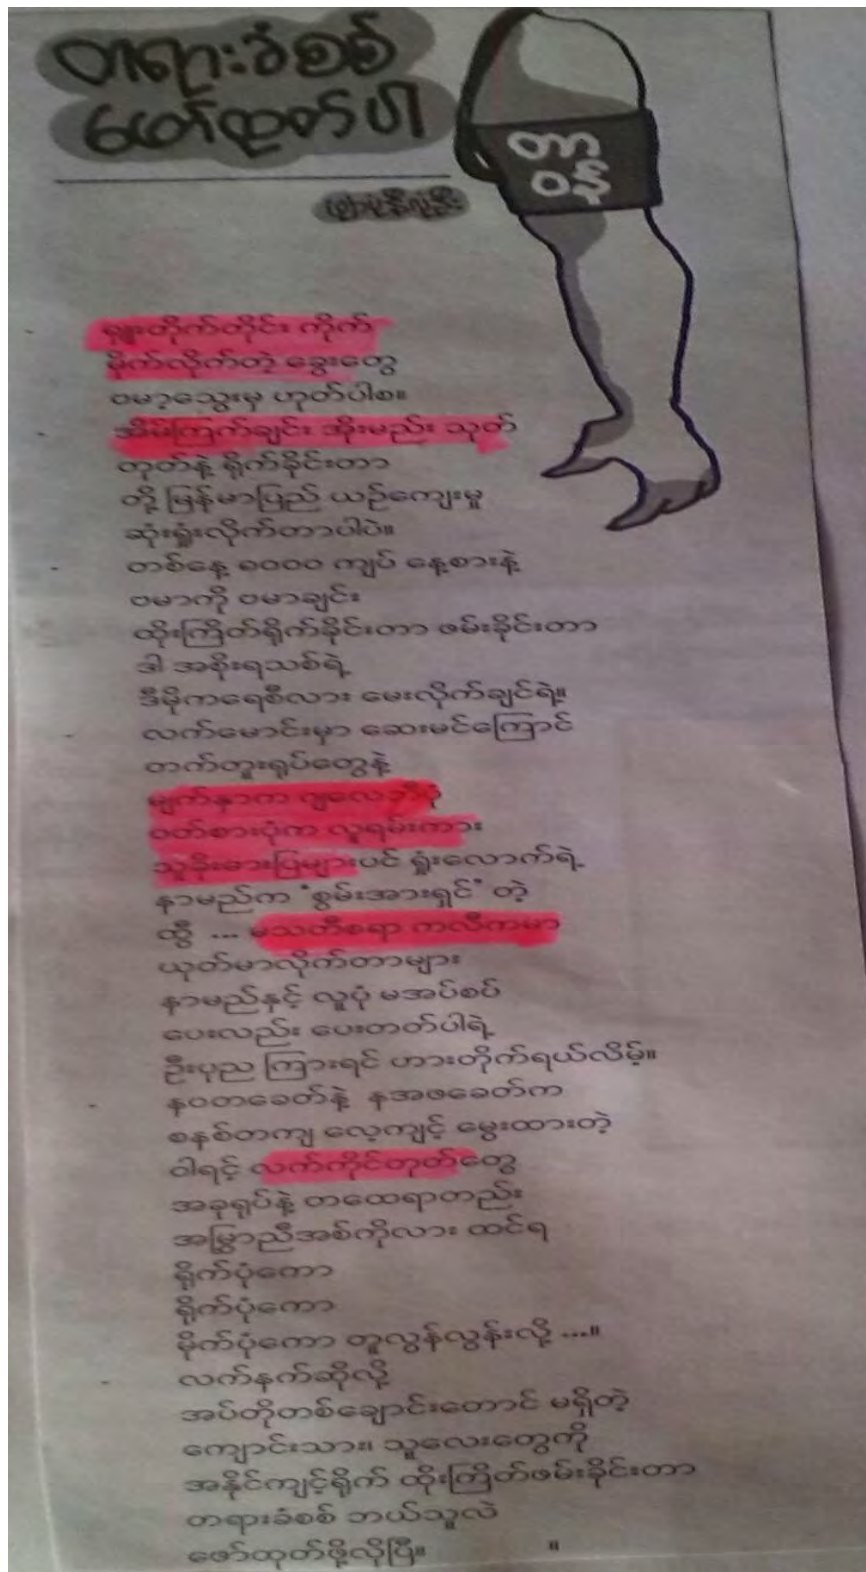 တရားခံစစ်
ဖော်ထုတ်ပါ
တာ
ဝန်
ရှူးတိုက်တိုင်း ကိုက်
မိုက်လိုက်တဲ့ ခွေးတွေ
ဗမာ့သွေးမှ ဟုတ်ပါစ။
အိမ်ကြက်ချင်း အိုးမည်း သုတ်
တုတ်နဲ့ ရိုက်ခိုင်းတာ
တို့ မြန်မာပြည် ယဉ်ကျေးမှု
ဆုံးရှုံးလိုက်တာပါပဲ။
တစ်နေ့ ၈၀၀၀ ကျပ် နေ့စားနဲ့
ဗမာကို ဗမာချင်း
ထိုးကြိတ်ရိုက်ခိုင်းတာ ဖမ်းခိုင်းတာ
ဒါ အစိုးရသစ်ရဲ့
ဒီမိုကရေစီလား မေးလိုက်ချင်ရဲ့။
လက်မောင်းမှာ ဆေးမင်ကြောင်
တက်တူးရုပ်တွေနဲ့
မျက်နှာက ဂျလေဘီပုံ
ဝတ်စားပုံက လူရမ်းကား
သူခိုးဓားပြများပင် ရှုံးလောက်ရဲ့
နာမည်က "စွမ်းအားရှင်" တဲ့
ထွီ ... မသတီစရာ ကလီကမာ
ယုတ်မာလိုက်တာများ
နာမည်နှင့် လူပုံ မအပ်စပ်
ပေးလည်း ပေးတတ်ပါရဲ့
ဦးပုည ကြားရင် ဟားတိုက်ရယ်လိမ့်။
နဝတခေတ်နဲ့ နအဖခေတ်က
စနစ်တကျ လေ့ကျင့် မွေးထားတဲ့
ဝါရင့် လက်ကိုင်တုတ်တွေ
အခုရုပ်နဲ့ တထေရာတည်း
အမြွှာညီအစ်ကိုလား ထင်ရ
ရိုက်ပုံကော
ရိုက်ပုံကော
မိုက်ပုံကော တူလွန်လွန်းလို့ ...။
လက်နက်ဆိုလို့
အပ်တိုတစ်ချောင်းတောင် မရှိတဲ့
ကျောင်းသား၊ သူလေးတွေကို
အနိုင်ကျင့်ရိုက် ထိုးကြိတ်ဖမ်းခိုင်းတာ
တရားခံစစ် ဘယ်သူလဲ
ဖော်ထုတ်ဖို့လိုပြီ။ ။